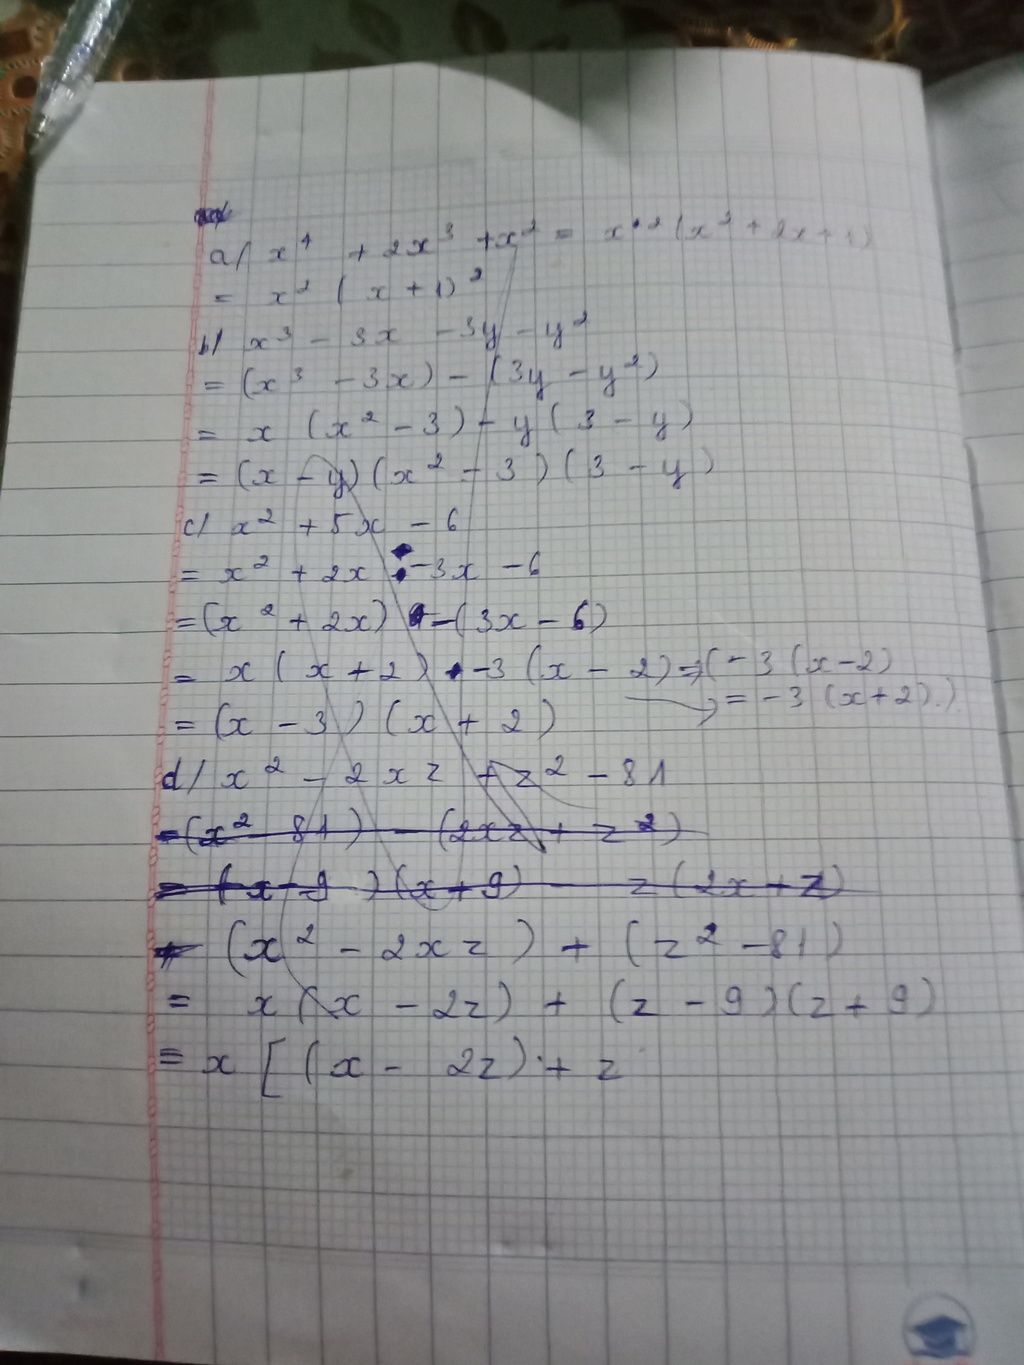 a/ x⁴ + 2x³ + x² = x² (x² + 2x + 1)
= x² (x + 1)²
b/ x³ - 3x - 3y - y²
= (x³ - 3x) - (3y - y²)
= x (x² - 3) - y (3 - y)
= (x - y) (x² - 3) (3 - y)
c/ x² + 5x - 6
= x² + 2x - 3x - 6
= (x² + 2x) - (3x - 6)
= x (x + 2) - 3 (x - 2) ⇒ (- 3 (x - 2)
= - 3 (x + 2).)
= (x - 3) (x + 2)
d/ x² - 2xz + z² - 81
= (x² - 81) - (2xz + z²)
= (x - 9) (x + 9) - z (2x + z)
= (x² - 2xz) + (z² - 81)
= x (x - 2z) + (z - 9) (z + 9)
= x [(x - 2z) + z